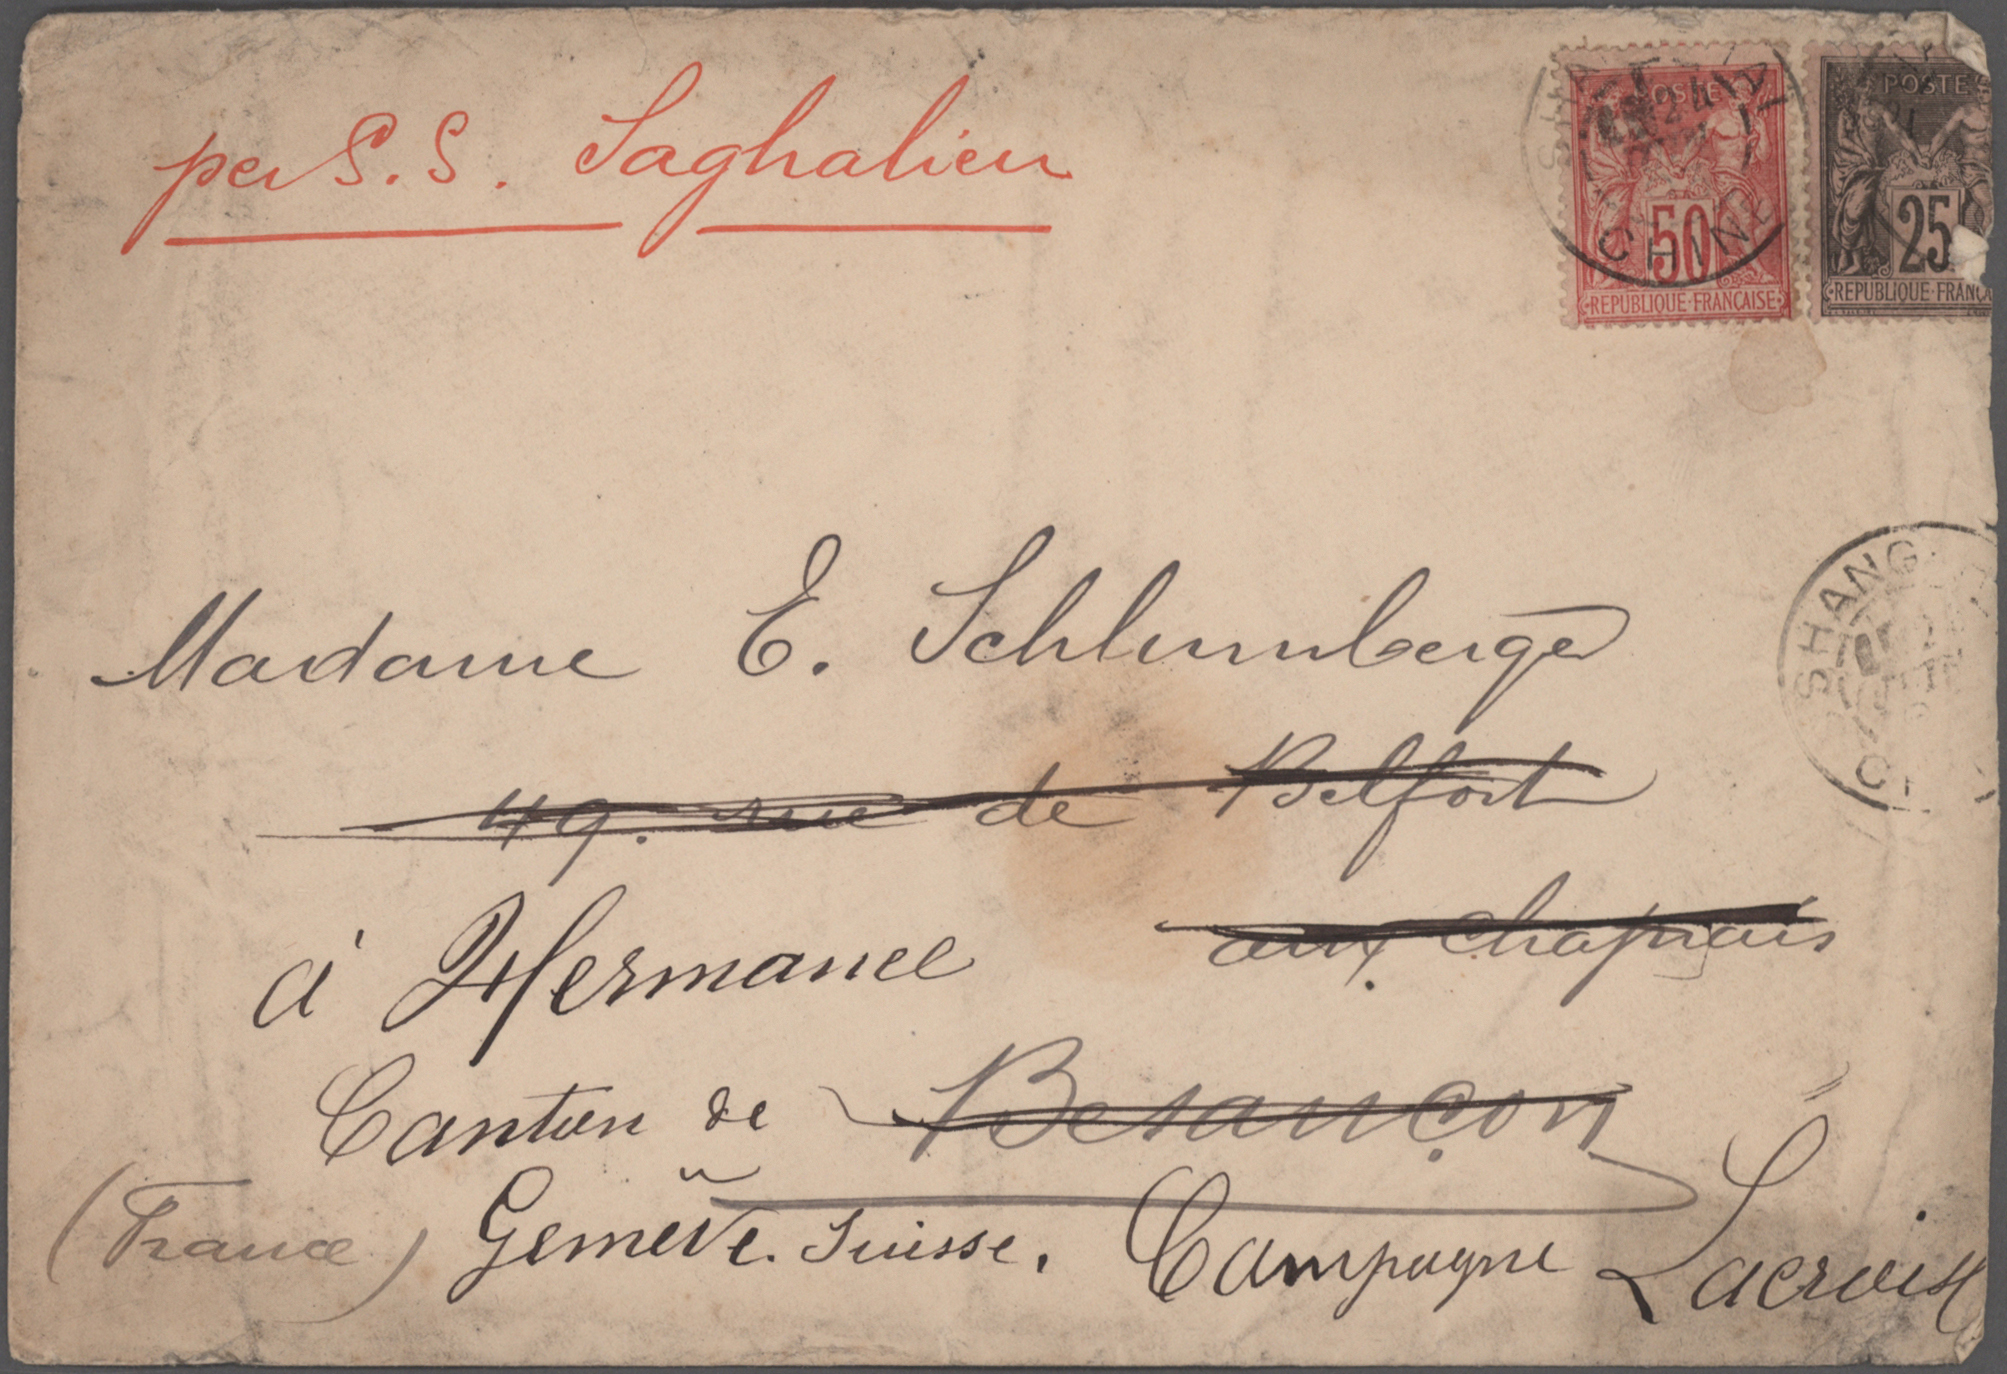 per S.S. Saghalien
POSTE
50
REPUBLIQUE FRANÇAISE
CHINE
POSTE
25
REPUBLIQUE FRANÇA
SHANG
Madame E. Schlumberger
49. rue de Belfort
aux Chaprais
à Hermance
Canton de Besançon
(France) Genève. Suisse. Campagne Lacroix